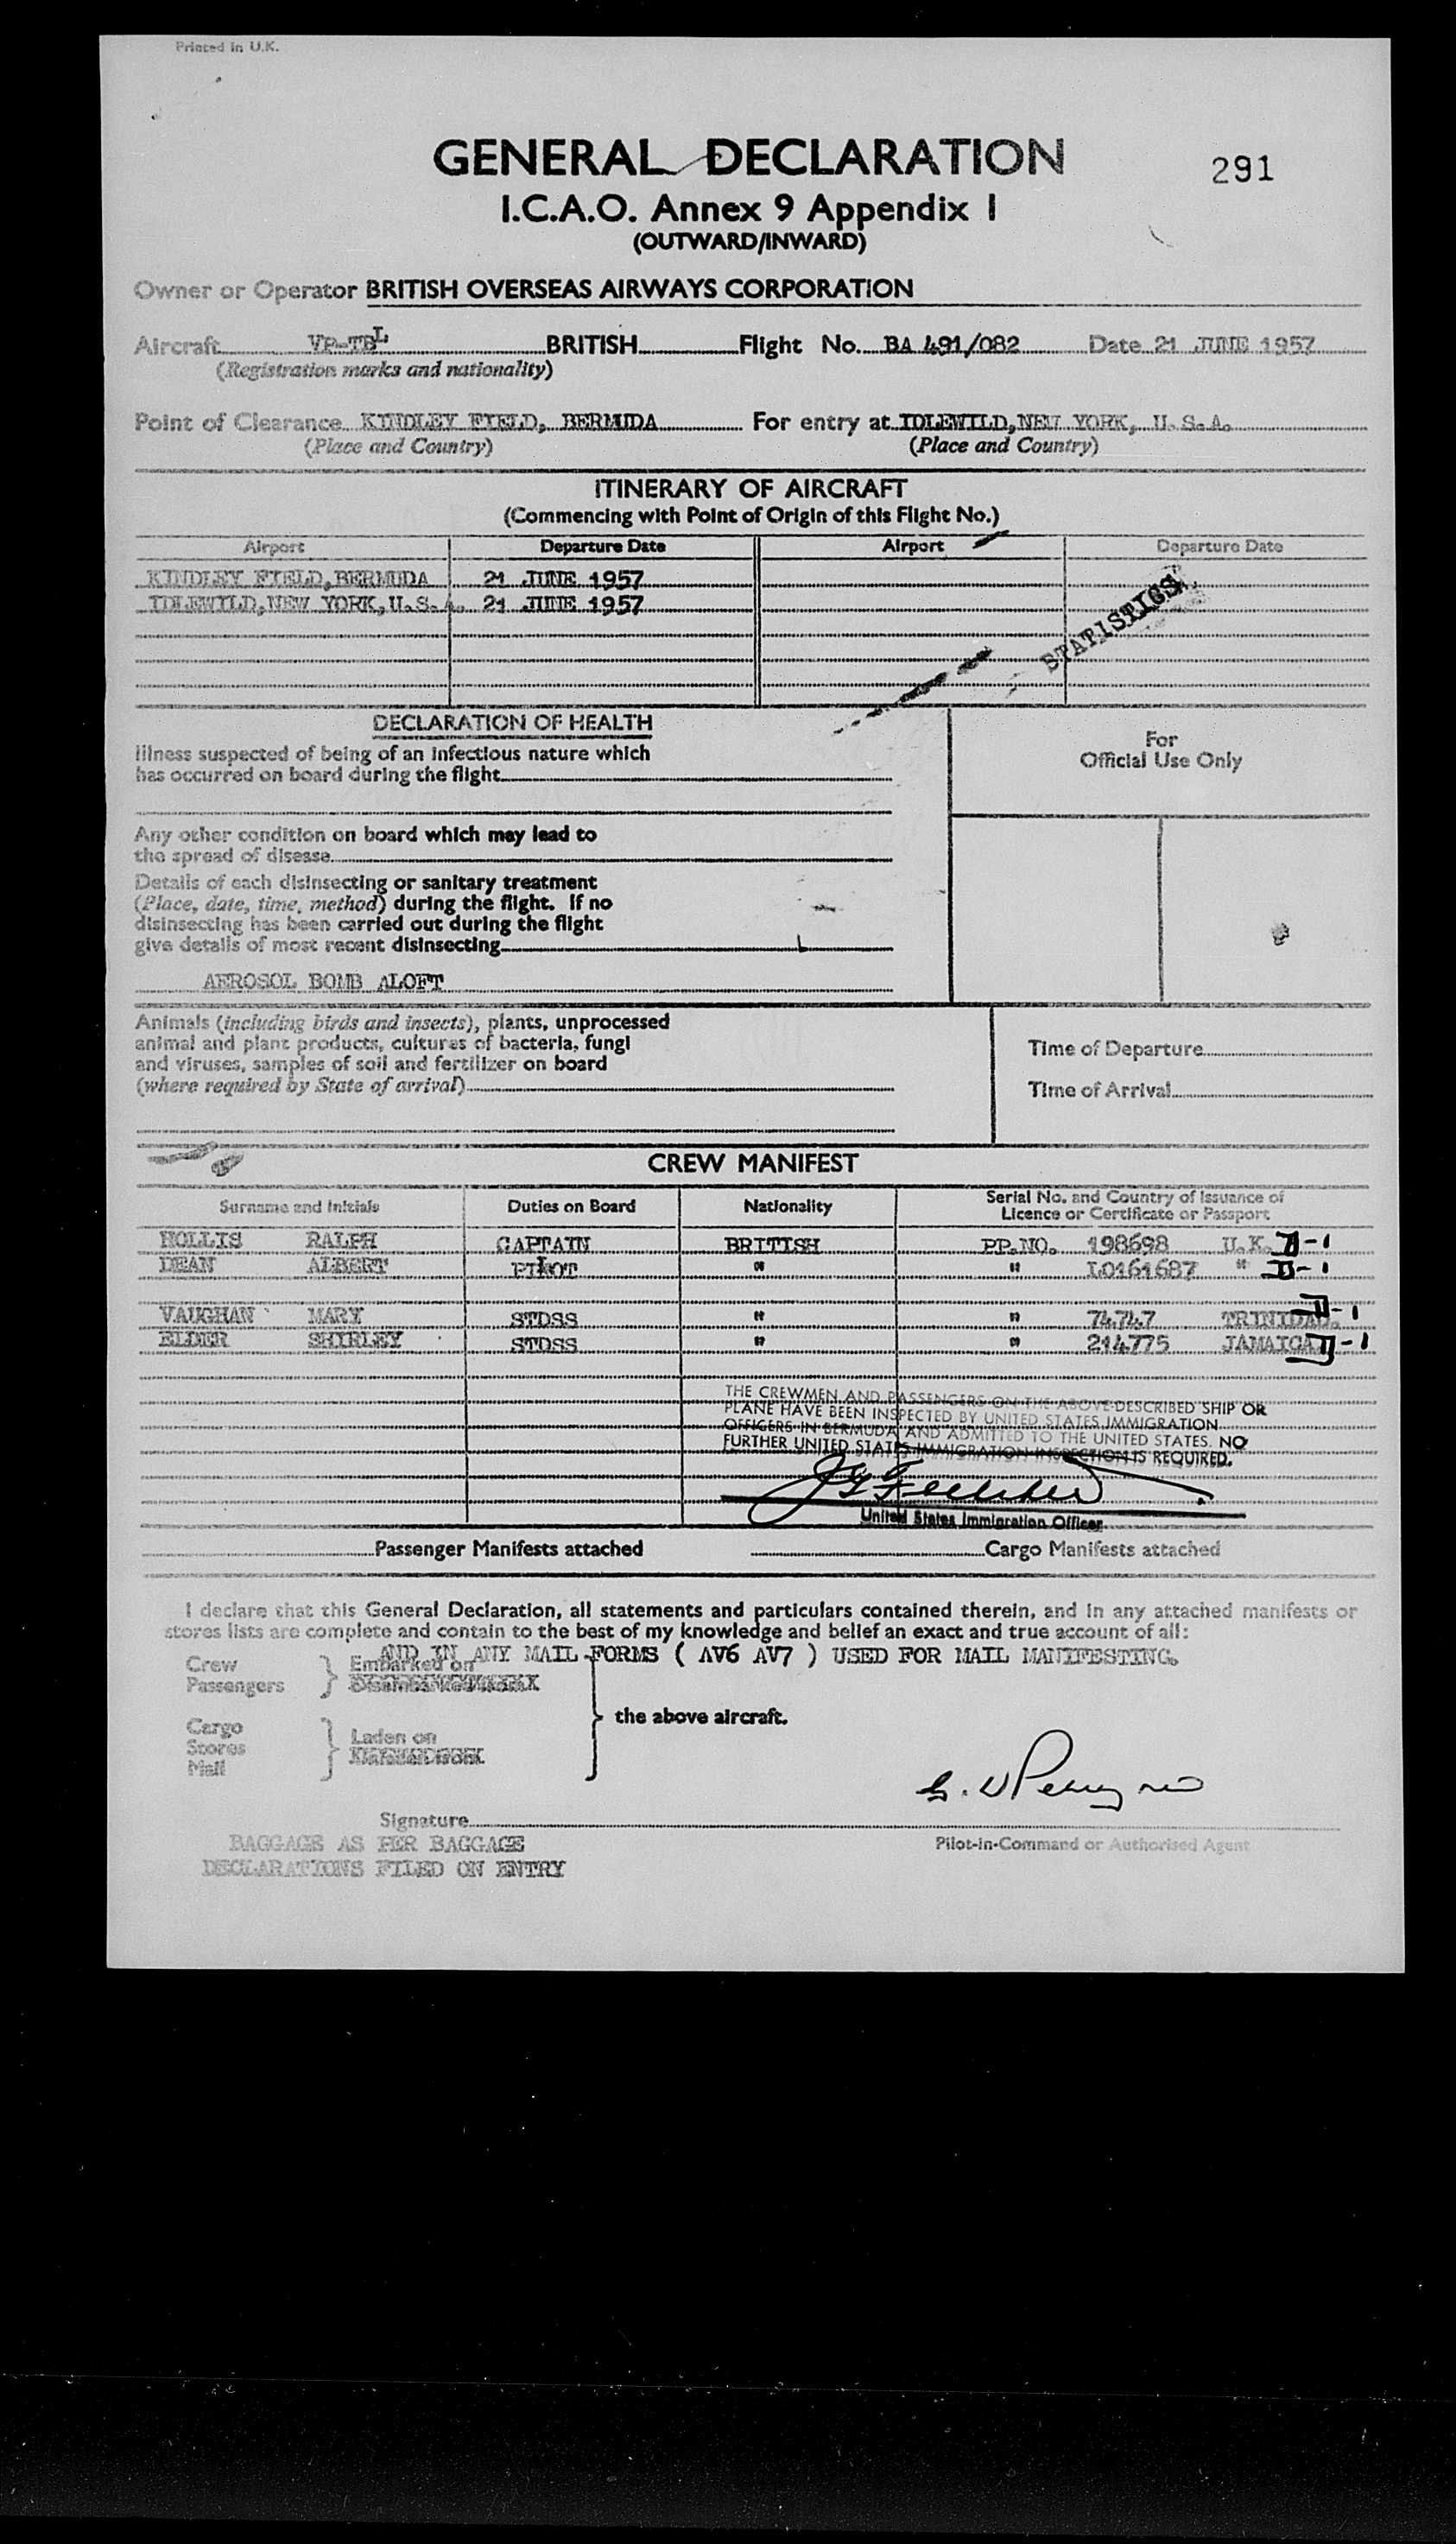 Printed in U.K.
GENERAL DECLARATION
291
I.C.A.O. Annex 9 Appendix I
(OUTWARD/INWARD)
Owner or Operator BRITISH OVERSEAS AIRWAYS CORPORATION
Aircraft VP-TBL BRITISH Flight No. BA 491/082 Date 21 JUNE 1957
(Registration marks and nationality)
Point of Clearance KINDLEY FIELD, BERMUDA For entry at IDLEWILD, NEW YORK, U.S.A.
(Place and Country) (Place and Country)
ITINERARY OF AIRCRAFT
(Commencing with Point of Origin of this Flight No.)
Airport Departure Date Airport Departure Date
KINDLEY FIELD, BERMUDA 21 JUNE 1957
IDLEWILD, NEW YORK, U.S.A. 21 JUNE 1957
STATISTICS
DECLARATION OF HEALTH
Illness suspected of being of an infectious nature which
has occurred on board during the flight
For
Official Use Only
Any other condition on board which may lead to
the spread of disease
Details of each disinsecting or sanitary treatment
(Place, date, time, method) during the flight. If no
disinsecting has been carried out during the flight
give details of most recent disinsecting
AEROSOL BOMB ALOFT
Animals (including birds and insects), plants, unprocessed
animal and plant products, cultures of bacteria, fungi
and viruses, samples of soil and fertilizer on board
(where required by State of arrival)
Time of Departure
Time of Arrival
CREW MANIFEST
Surname and Initials Duties on Board Nationality Serial No. and Country of Issuance of
Licence or Certificate or Passport
HOLLIS RALPH CAPTAIN BRITISH PP.NO. 198698 U.K. II-1
DEAN ALBERT PILOT " " L0161687 " II-1
VAUGHAN MARY STDSS " " 74747 TRINIDAD. II-1
ELDER SHIRLEY STDSS " " 214775 JAMAICA II-1
THE CREWMEN AND PASSENGERS ON THE ABOVE-DESCRIBED SHIP OR
PLANE HAVE BEEN INSPECTED BY UNITED STATES IMMIGRATION
OFFICERS IN BERMUDA AND ADMITTED TO THE UNITED STATES. NO
FURTHER UNITED STATES IMMIGRATION INSPECTION IS REQUIRED.
United States Immigration Officer
Passenger Manifests attached Cargo Manifests attached
I declare that this General Declaration, all statements and particulars contained therein, and in any attached manifests or
stores lists are complete and contain to the best of my knowledge and belief an exact and true account of all:
AND IN ANY MAIL FORMS ( AV6 AV7 ) USED FOR MAIL MANIFESTING.
Crew Embarked on
Passengers
the above aircraft.
Cargo
Stores Laden on
Mail
Signature
Pilot-in-Command or Authorised Agent
BAGGAGE AS PER BAGGAGE
DECLARATIONS FILED ON ENTRY